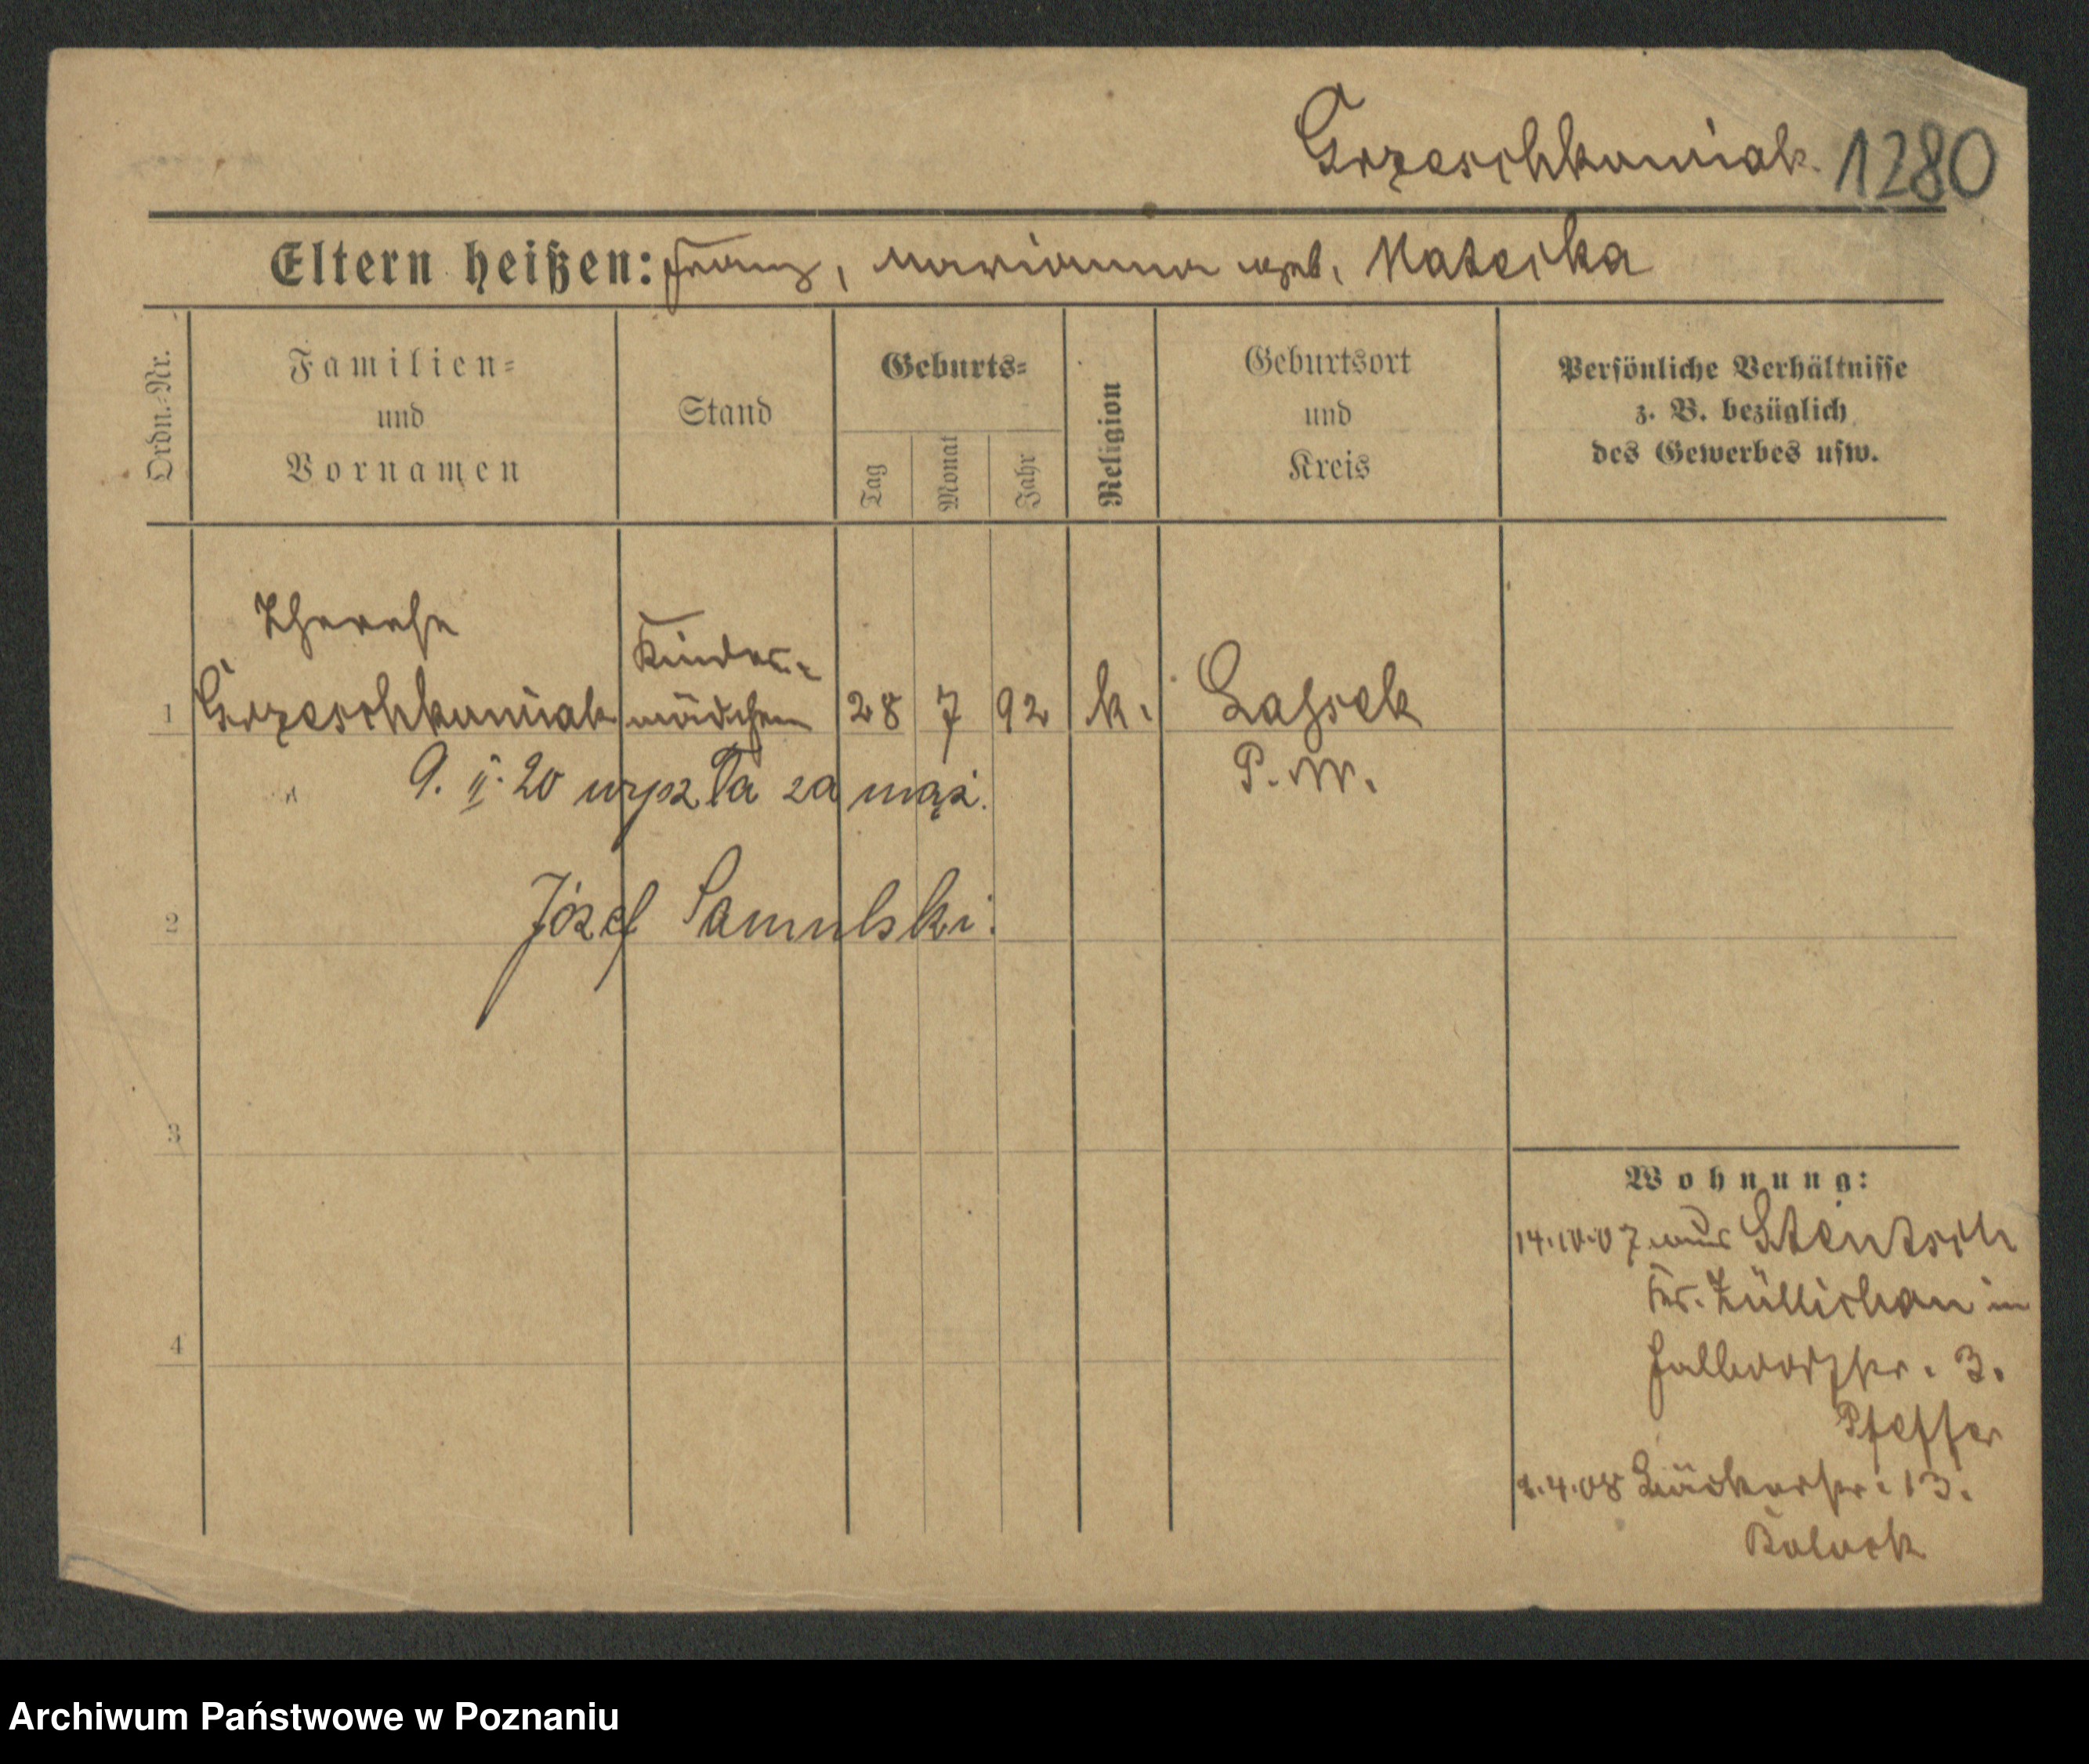 Grzeschkowiak. 1280
Eltern heißen: Franz, Marianna geb. Mateika
Ordn.-Nr.
Familien-
und
Vornamen
Stand
Geburts-
Tag
Monat
Jahr
Religion
Geburtsort
und
Kreis
Persönliche Verhältnisse
z. B. bezüglich
des Gewerbes usw.
Therese
Kinder-
1 Grzeschkowiak mädchen 28 7 92 k. Lassek
P. W.
9. II. 20 wyszła za mąż.
2 Józef Samulski.
3
4
Wohnung:
14.10.07 aus Stentsch
Kr. Züllichau in
Halbdorfstr. 3.
Pfeffer
2.4.08 Bäckerstr. 13.